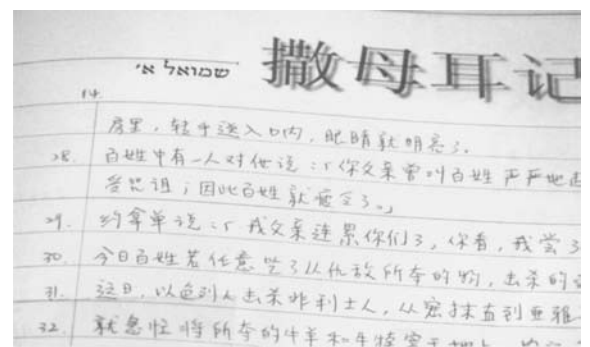 שמואל א'
撒母耳记
14.
房里，转手送入口内，眼睛就明亮了。
28. 百姓中有一人对他说：「你父亲曾叫百姓严严地起
受咒诅；因此百姓就疲乏了。」
29. 约拿单说：「我父亲连累你们了，你看，我尝了
30. 今日百姓若任意吃了从仇敌所夺的物，击杀的
31. 这日，以色列人击杀非利士人，从密抹直到亚雅
32. 就急忙将所夺的牛羊和牛犊宰于地上，